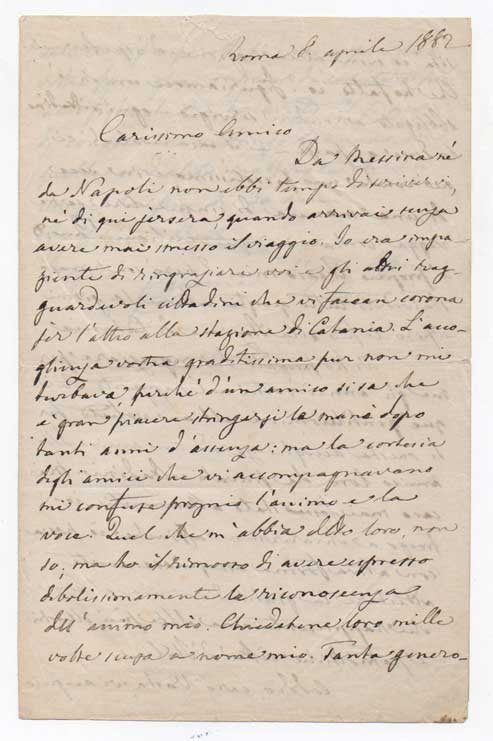 Roma 8. aprile 1882
Carissimo Amico
Da Messina nè
da Napoli non ebbi tempo di scrivervi,
nè di qui jersera, quando arrivai senza
avere mai smesso il viaggio. Io era impa-
ziente di ringraziare voi e gli altri rag-
guardevoli cittadini che vi facean corona
jer l'altro alla stazione di Catania. L'acco-
glienza vostra graditissima pur non mi
turbava, perchè d'un amico si sa che
è gran piacere stringergli la mano dopo
tanti anni d'assenza: ma la cortesia
degli amici che vi accompagnavano
mi confuse proprio l'animo e la
voce. Quel che m'abbia detto loro, non
so; ma ho il rimorso di avere espresso
debolissimamente la riconoscenza
dell'animo mio. Chiedetene loro mille
volte scusa a nome mio. Tanta genero-